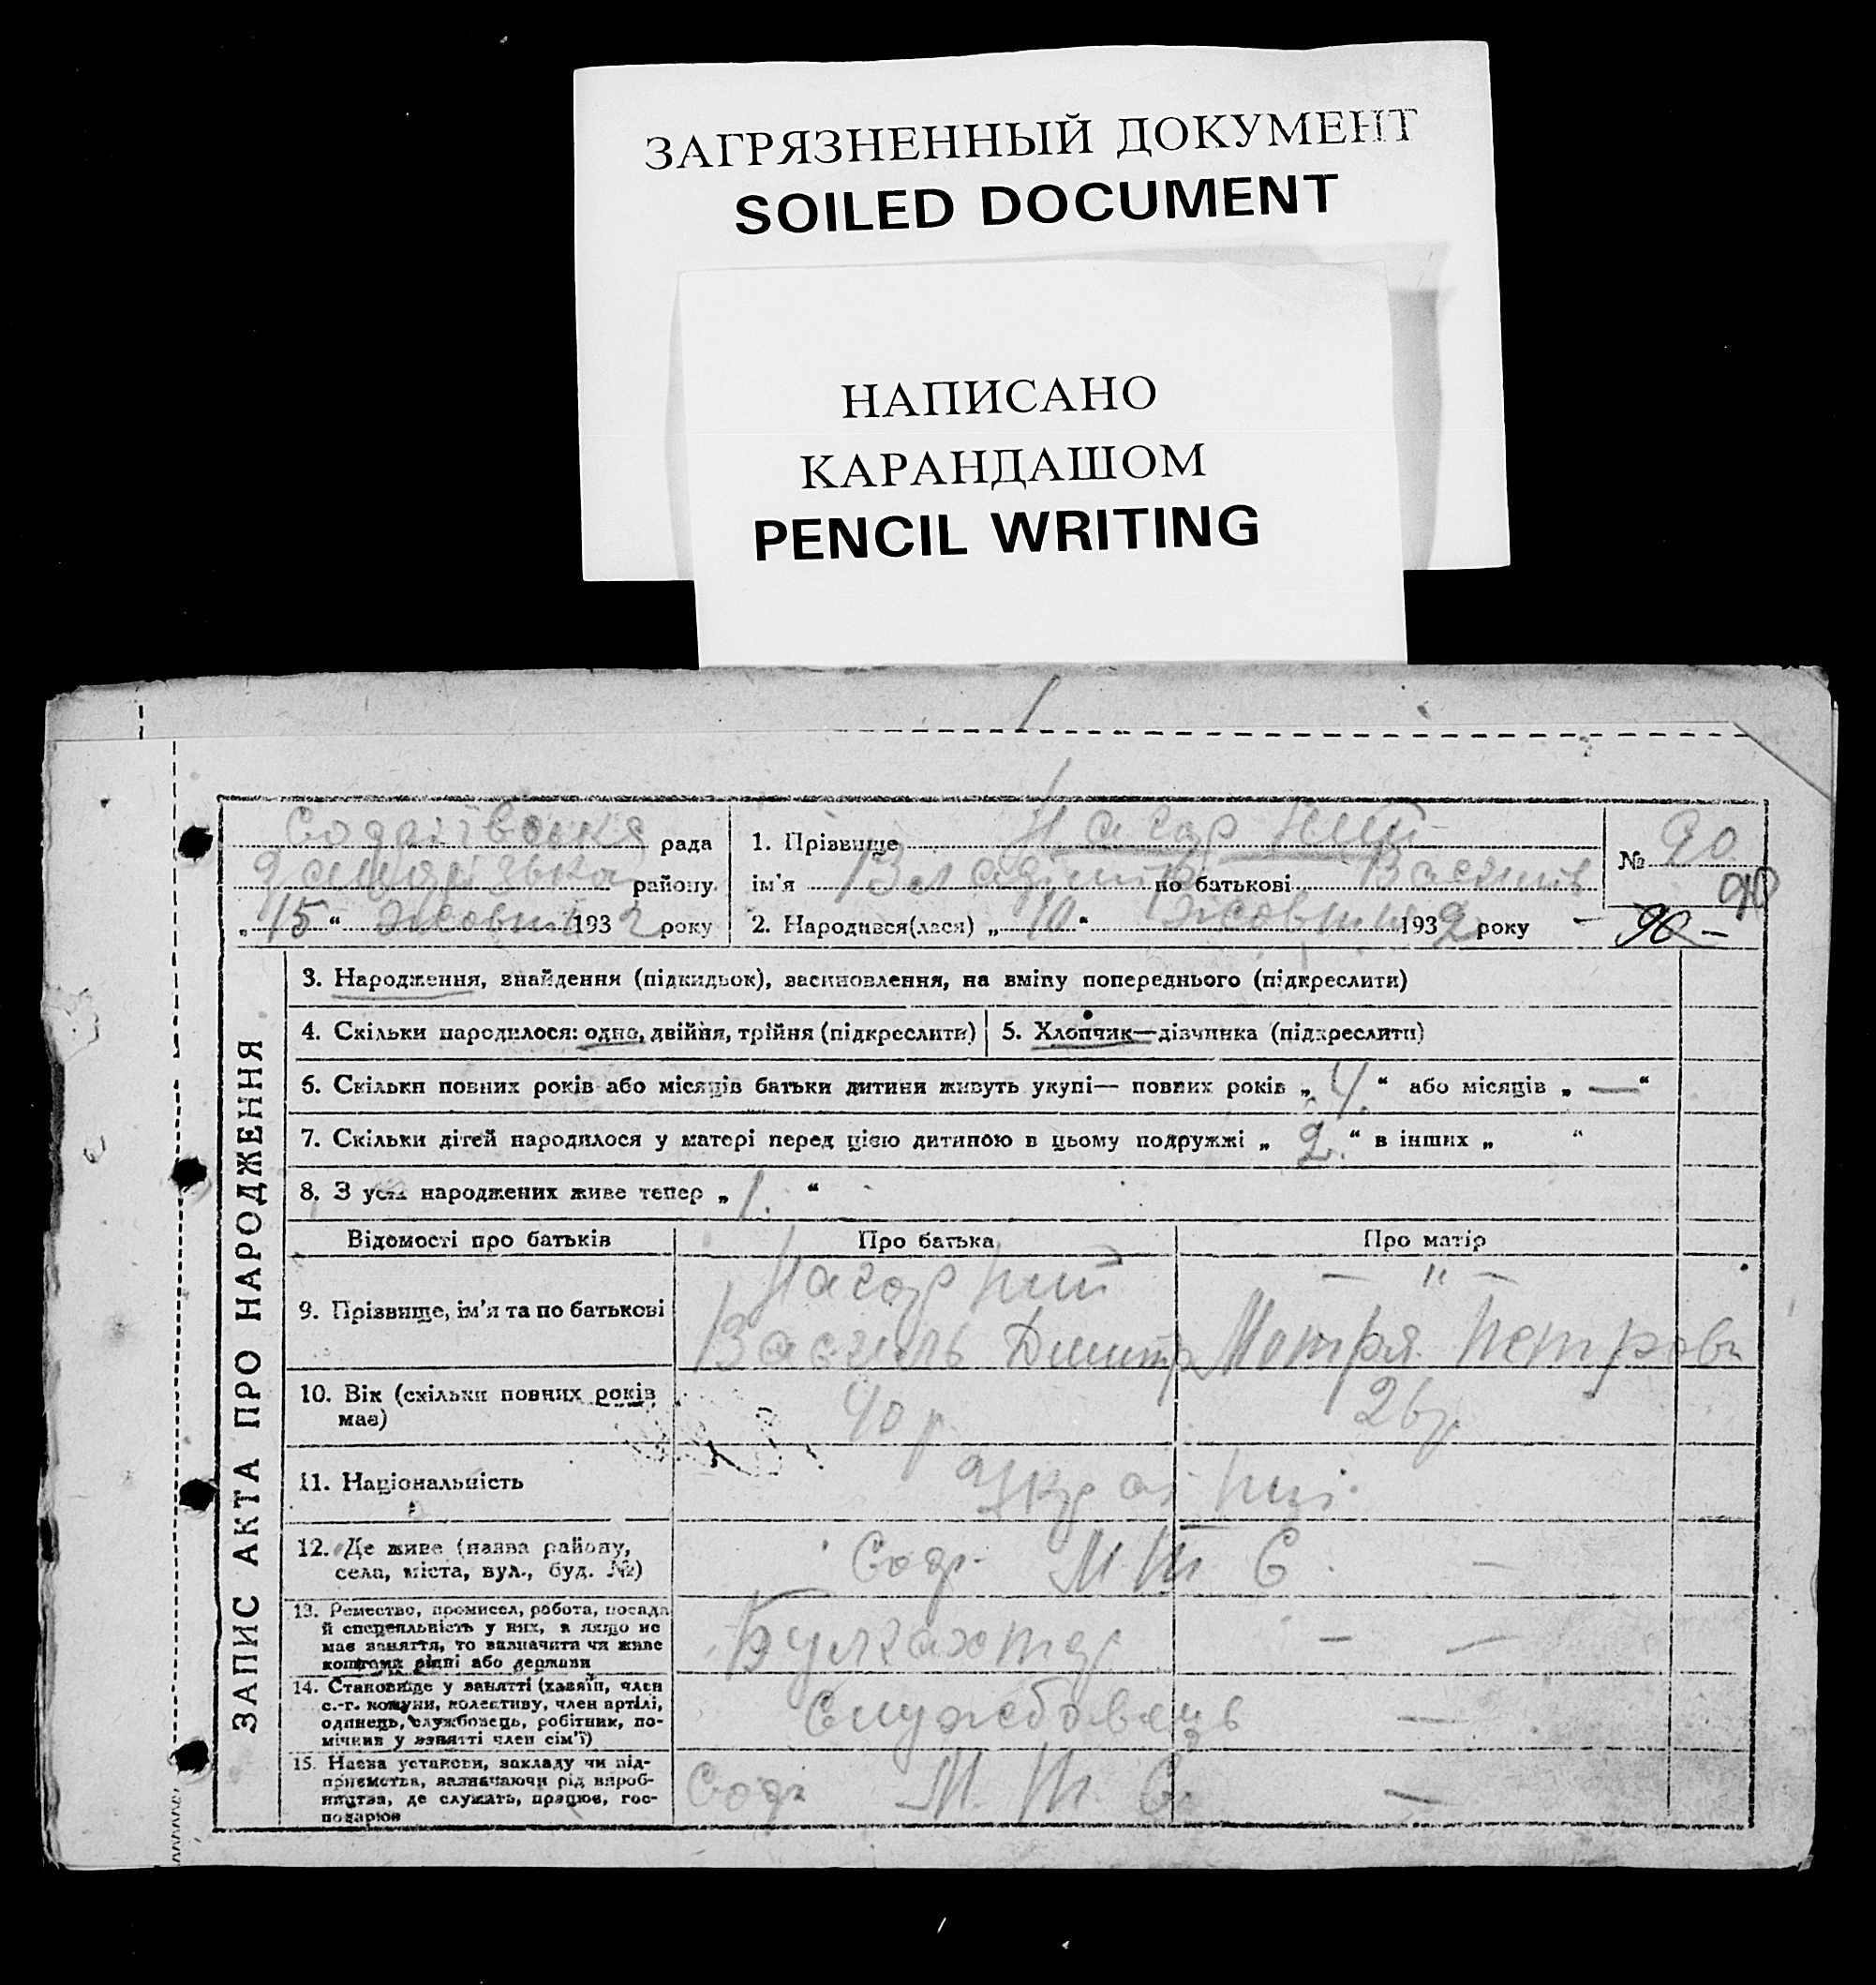 ЗАГРЯЗНЕННЫЙ ДОКУМЕНТ
SOILED DOCUMENT
НАПИСАНО
КАРАНДАШОМ
PENCIL WRITING
ЗАПИС АКТА ПРО НАРОДЖЕННЯ
рада
району
„15“ Жовтн 1932 року
1. Прізвище Нагорний
ім'я Владімір по батькові Васил
2. Народився(лася) „10“ Жовтн 1932 року
№ 90
90
90 –
3. Народження, знайдення (підкидьок), васиновлення, на вміну попереднього (підкреслити)
4. Скільки народилося: одно, двійня, трійня (підкреслити)
5. Хлопчик—дівчинка (підкреслити)
6. Скільки повних років або місяців батьки дитини живуть укупі— повних років „4.“ або місяців „—“
7. Скільки дітей народилося у матері перед цією дитиною в цьому подружжі „2.“ в інших „ “
8. З усіх народжених живе тепер „1.“
Відомості про батьків
Про батька
Про матір
9. Прізвище, ім'я та по батькові
Нагорний
— " —
Василь Дмитр
Мотря Петровн
10. Вік (скільки повних років має)
40 р
26 р
11. Національність
Україн
12. Де живе (назва району, села, міста, вул., буд. №)
Сод. М Т С. –
13. Ремество, промисел, робота, посада й спеціяльність у них, а якщо не має заняття, то вазначити чи живе коштами рідні або держави
Булгахтер
– —
14. Становище у занятті (хазяїн, член с.-г. комуни, колективу, член артілі, одинець, службовець, робітник, помічник у занятті член сім'ї)
Службовець
—
15. Назва установи, закладу чи підприємства, вазначаючи рід виробництва, де служить, працює, господарює
Сод. М. Т. С.
—